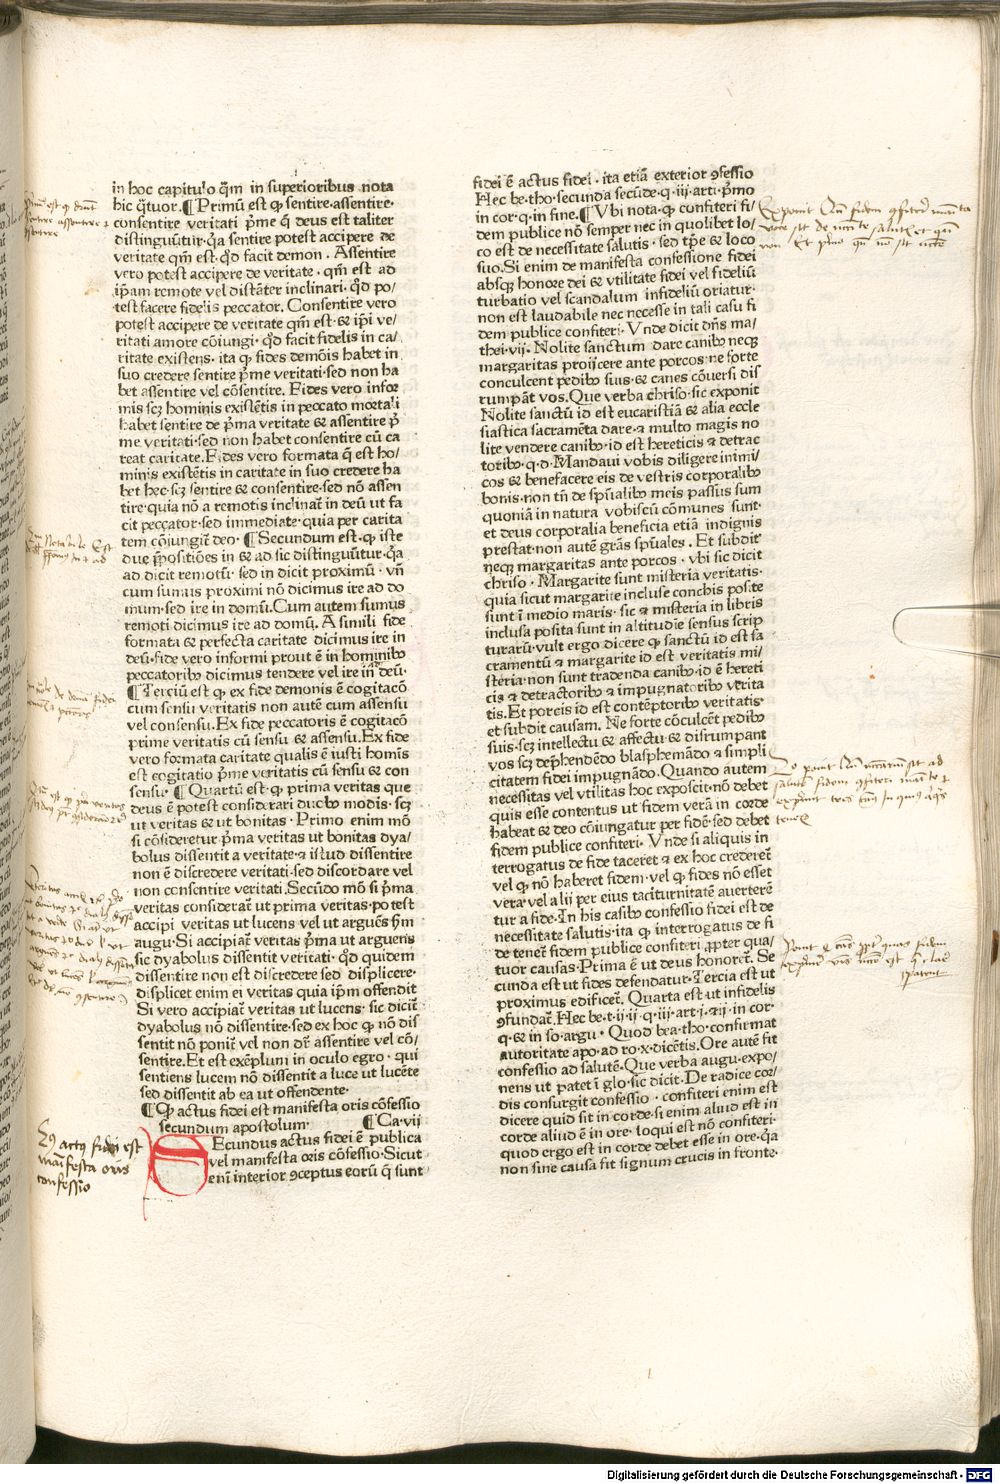 in hoc capitulo q̄m in superioribus nota
hic q̄tuor. ¶ Primū est ꝙ sentire·assentire·
consentire veritati p̄me q̄ deus est taliter
distinguūtur·q̄a sentire potest accipere de
veritate qm̄ est·qd̄ facit demon. Assentire
vero potest accipere de veritate · qm̄ est ad
ip̄am remote vel distāter inclinari· qd̄ po/
test facere fidelis peccator. Consentire vero
potest accipere de veritate qm̄ est· & ip̄i ve/
ritati amore cōiungi· qd̄ facit fidelis in ca/
ritate existens· ita ꝙ fides demōis habet in
suo credere sentire p̄me veritati·sed non ha
bet assentire vel cōsentire. Fides vero infor
mis scꝫ hominis existētis in peccato mortali
habet sentire de p̄ma veritate & assentire p̄
me veritati·sed non habet consentire cū ca
reat caritate. Fides vero formata q̄ est ho/
minis existētis in caritate in suo credere ha
bet hec·scꝫ sentire & consentire·sed nō assen
tire·quia nō a remotis inclinat̄ in deū ut fa
cit peccator·sed immediate·quia per carita
tem cōiungit̄ deo· ¶ Secundum est·ꝙ iste
due p̄positiōes in & ad sic distinguūtur·q̄a
ad dicit remotū· sed in dicit proximū · vn̄
cum sumus proximi nō dicimus ire ad do
mum·sed ire in domū. Cum autem sumus
remoti dicimus ire ad domū. A simili fide
formata & perfecta caritate dicimus ire in
deū·fide vero informi prout ē in hominibꝰ
peccatoribꝰ dicimus tendere vel ire in deū·
¶ Terciū est ꝙ ex fide demonis ē cogitacō
cum sensu veritatis non autē cum assensu
vel consensu. Ex fide peccatoris ē cogitacō
prime veritatis cū sensu & assensu. Ex fide
vero formata caritate qualis ē iusti homis̄
est cogitatio p̄me veritatis cū sensu & con
sensu· ¶ Quartū est· ꝙ prima veritas que
deus ē potest considerari duobꝰ modis· scꝫ
ut veritas & ut bonitas · Primo enim mō
si cōsideretur p̄ma veritas ut bonitas dya/
bolus dissentit a veritate·⁊ istud dissentire
non ē discredere veritati·sed discordare vel
non consentire veritati. Secūdo mō si p̄ma
veritas considerat̄ ut prima veritas·potest
accipi veritas ut lucens vel ut arguēs s̄m
augu· Si accipiat̄ veritas p̄ma ut arguens
sic dyabolus dissentit veritati· qd̄ quidem
dissentire non est discredere sed displicere·
displicet enim ei veritas quia ip̄m offendit
Si vero accipiat̄ veritas ut lucens· sic dicit̄
dyabolus nō dissentire·sed ex hoc ꝙ nō dis
sentit nō ponit̄ vel non dr̄ assentire vel cō/
sentire. Et est exēplum in oculo egro · qui
sentiens lucem nō dissentit a luce ut lucēte
sed dissentit ab ea ut offendente·
¶ Ꝙ actus fidei est manifesta oris cōfessio
secundum apostolum· ¶ Ca·vii
SEcundus actus fidei ē publica
vel manifesta oris cōfessio·Sicut
eni interior ꝯceptus eorū q̄ sunt
fidei ē actus fidei · ita etiā exterior ꝯfessio
Hec be·tho·secunda secūde·q·iii·arti·p̄mo
in cor·q·in fine. ¶ Vbi nota·ꝙ confiteri fi/
dem publice nō semper nec in quolibet lo/
co est de necessitate salutis · sed tp̄e & loco
suo. Si enim de manifesta confessione fidei
absqꝫ honore dei & utilitate fidei vel fideliū
turbatio vel scandalum infideliū oriatur·
non est laudabile nec necesse in tali casu fi
dem publice confiteri· Vnde dicit dn̄s ma/
thei·vij· Nolite sanctum dare canibꝰ neqꝫ
margaritas proijcere ante porcos·ne forte
conculcent pedibꝰ suis·& canes cōuersi dis
rumpāt vos. Que verba chriso·sic exponit
Nolite sanctū id est eucaristiā & alia eccle
siastica sacramēta dare·⁊ multo magis no
lite vendere canibꝰ·id est hereticis & detrac
toribꝰ·q·d·Mandaui vobis diligere inimi/
cos & benefacere eis de vestris corporalibꝰ
bonis·non tn̄ de sp̄ualibꝰ meis passus sum
quoniā in natura vobiscū cōmunes sunt·
et deus corporalia beneficia etiā indignis
prestat·non autē grās sp̄uales . Et subdit
neqꝫ margaritas ante porcos · vbi sic dicit
chriso · Margarite sunt misteria veritatis·
quia sicut margarite incluse conchis posite
sunt ī medio maris· sic & misteria in libris
inclusa posita sunt in altitudīe sensus scrip
turarū·vult ergo dicere ꝙ sanctū id est sa
cramentū ⁊ margarite id est veritatis mi/
steria·non sunt tradenda canibꝰ·id ē hereti
cis ⁊ detractoribꝰ ⁊ impugnatoribꝰ verita
tis. Et porcis id est contēptoribꝰ veritatis·
et subdit causam. Ne forte cōculcēt pedibꝰ
suis·scꝫ intellectu & affectu & disrumpant
vos scꝫ dep̄hendēdo blasphemādo & simpli
citatem fidei impugnādo. Quando autem
necessitas vel utilitas hoc exposcit·nō debet
quis esse contentus ut fidem verā in corde
habeat & deo cōiungatur per fidē·sed debet
fidem publice confiteri· Vnde si aliquis in
terrogatus de fide taceret ⁊ ex hoc crederet̄
vel ꝙ nō haberet fidem·vel ꝙ fides nō esset
vera·vel alij per eius taciturnitatē auerterē
tur a fide·In his casibꝰ confessio fidei est de
necessitate salutis·ita ꝙ interrogatus de fi
de tenet̄ fidem publice confiteri ꝓpter qua/
tuor causas·Prima ē ut deus honoret̄. Se
cunda est ut fides defendatur·Tercia est ut
proximus edificet̄. Quarta est ut infidelis
ꝯfundat̄·Hec be·t·ij·ij·q·iii·art·j·⁊·ij·in cor·
q·& in so·argu · Quod bea·tho·confirmat
autoritate apo·ad ro·x·dicētis. Ore autē fit
confessio ad salutē·Que verba augu·expo/
nens ut patet ī glo·sic dicit·De radice cor/
dis consurgit confessio · confiteri enim est
dicere quid sit in corde·si enim aliud est in
corde aliud ē in ore·loqui est nō confiteri·
quod ergo est in corde debet esse in ore·q̄a
non sine causa fit signum crucis in fronte·
actus fidei est
manifesta oris
confessio
Digitalisierung gefördert durch die Deutsche Forschungsgemeinschaft - DFG